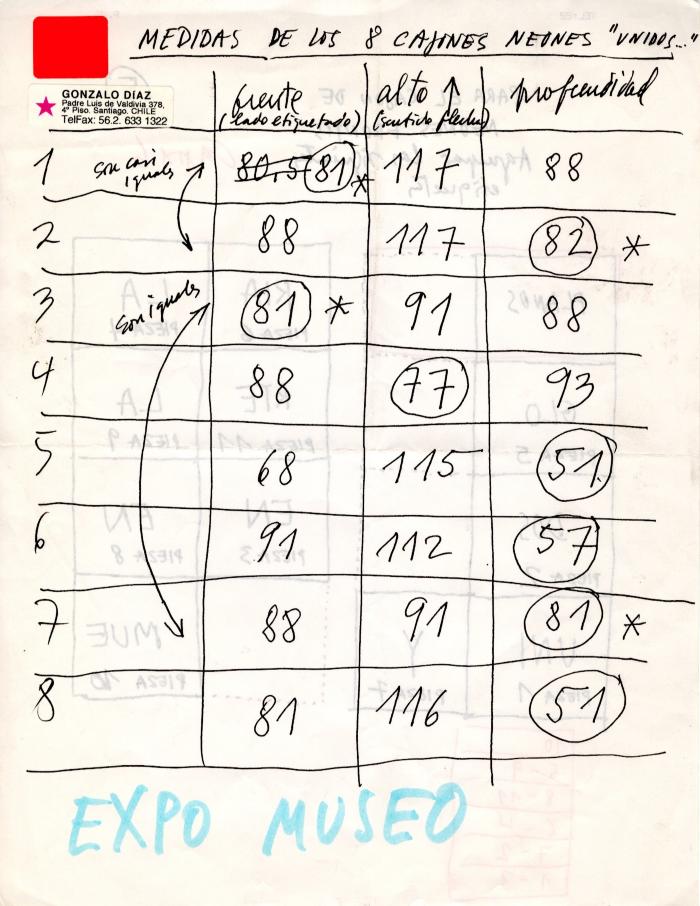 MEDIDAS DE LOS 8 CAJONES NEONES "UNIDOS..."
GONZALO DÍAZ
Padre Luis de Valdivia 378,
4º Piso. Santiago, CHILE
TelFax: 56.2. 633 1322
frente alto ↑ profundidad
(lado etiquetado) (sentido flecha)
1 son casi iguales 80,5 81 * 117 88
2 88 117 82 *
3 son iguales 81 * 91 88
4 88 77 93
5 68 115 51
6 91 112 57
7 88 91 81 *
8 81 116 51
EXPO MUSEO